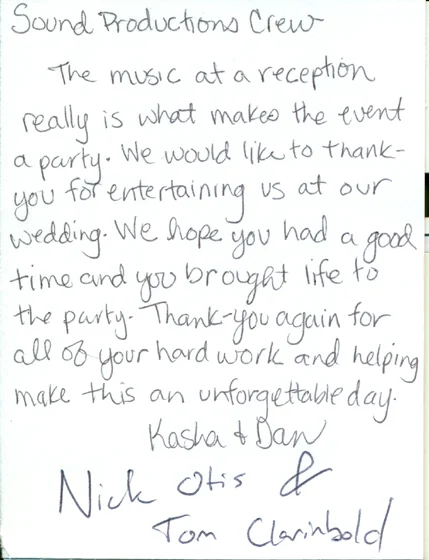 Sound Productions Crew
The music at a reception
really is what makes the event
a party. We would like to thank-
you for entertaining us at our
wedding. We hope you had a good
time and you brought life to
the party. Thank-you again for
all of your hard work and helping
make this an unforgettable day.
Kasha & Dan
Nick Otis &
Tom Clarinbold